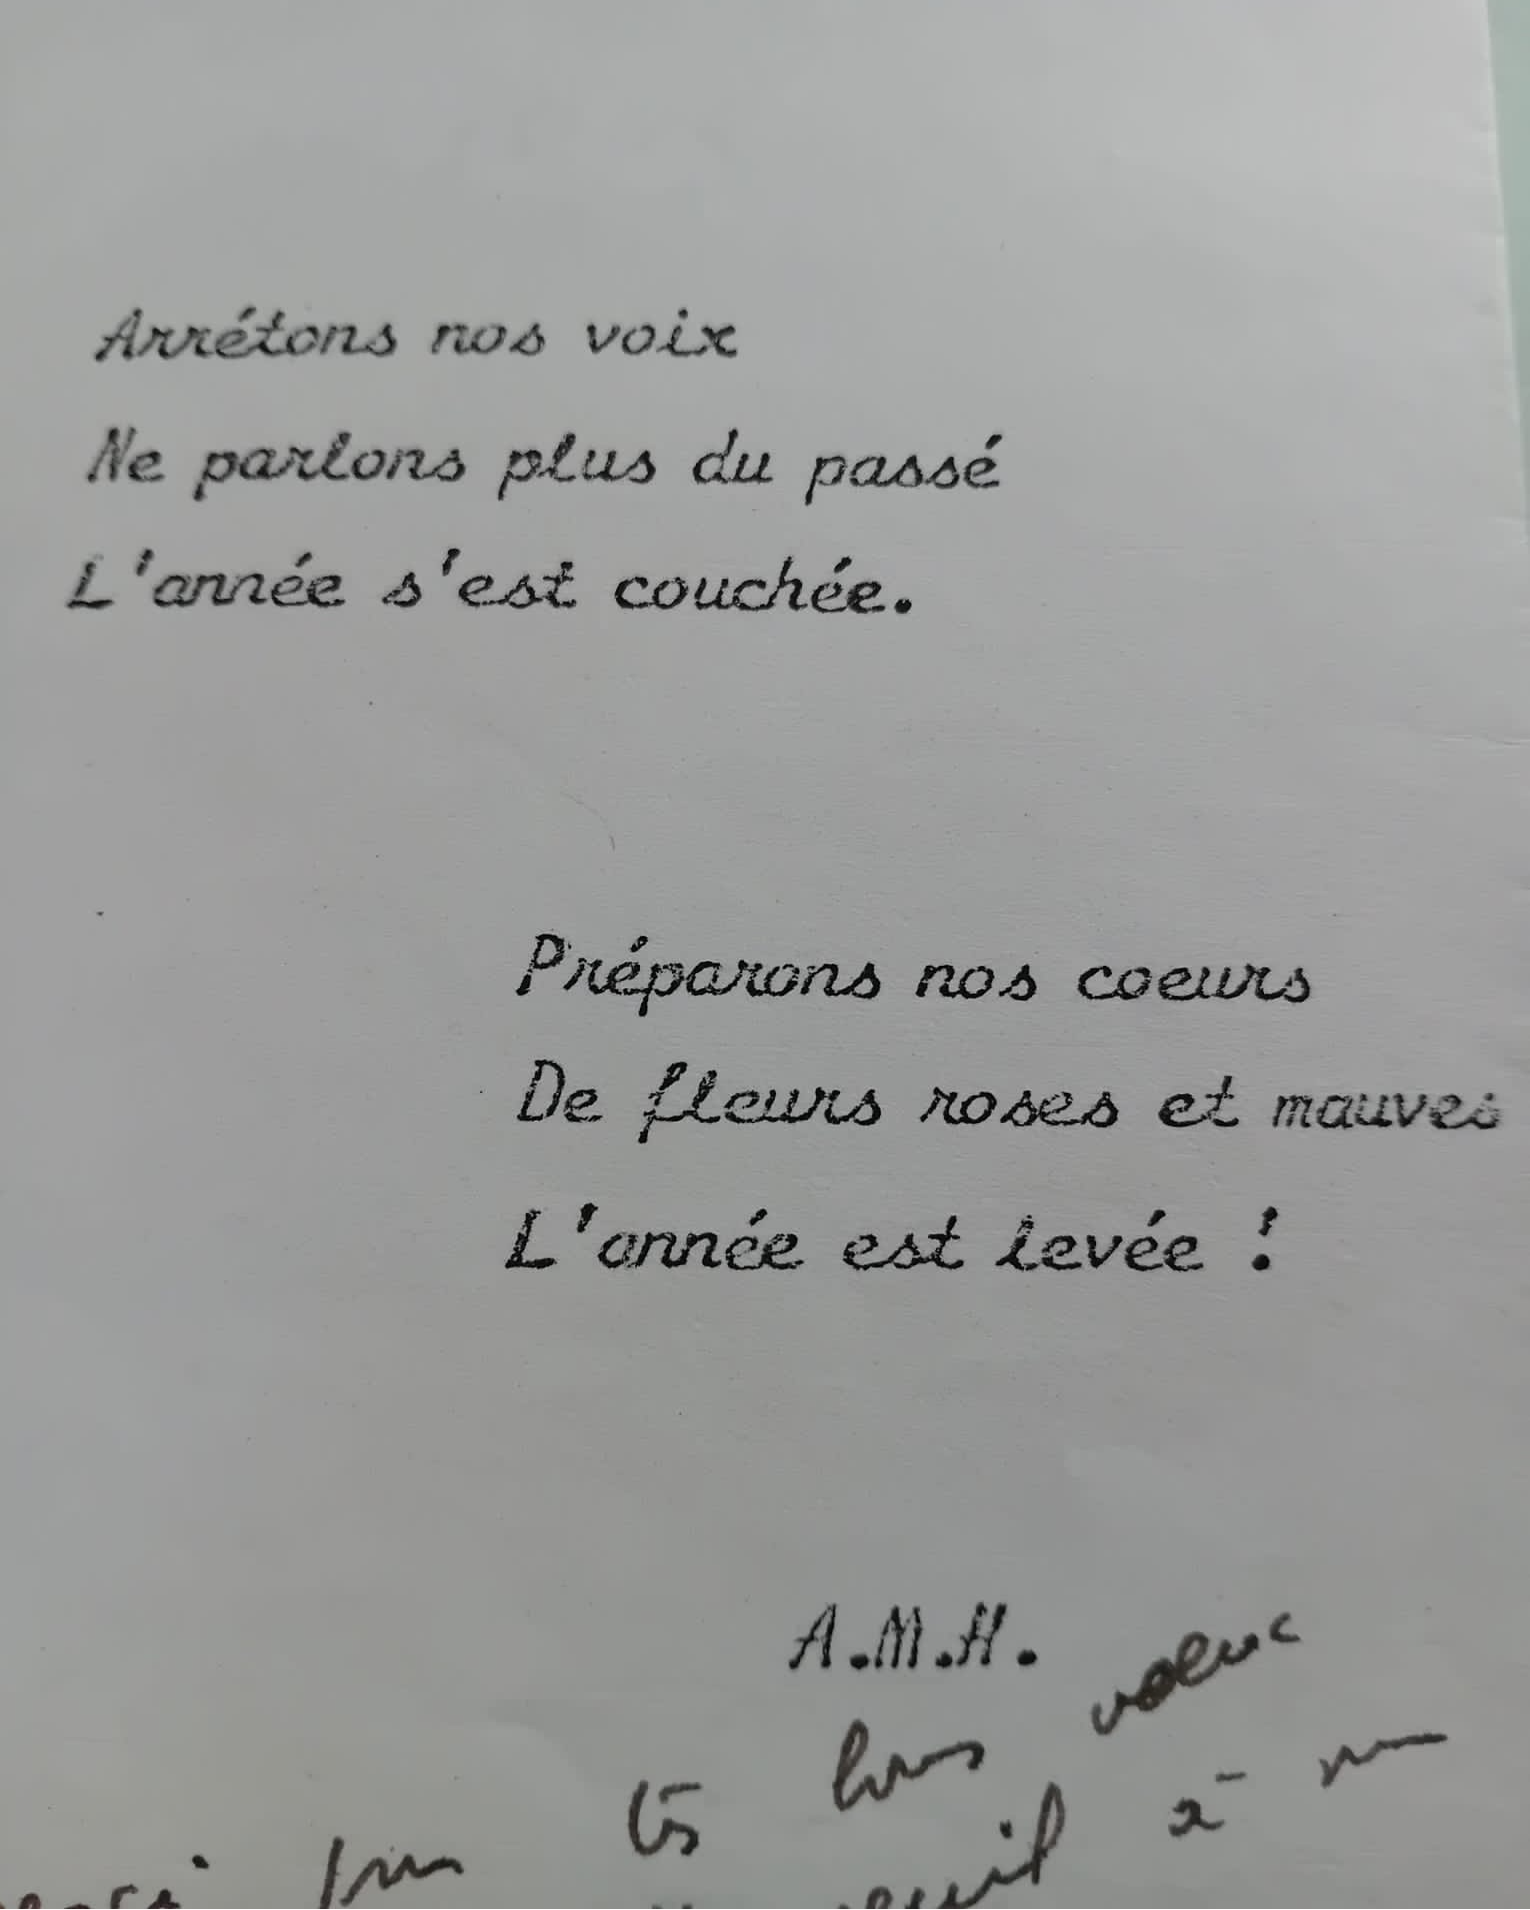 Arrétons nos voix
Ne parlons plus du passé
L'année s'est couchée.
Préparons nos coeurs
De fleurs roses et mauves
L'année est levée !
A.M.H.
voeux
bons